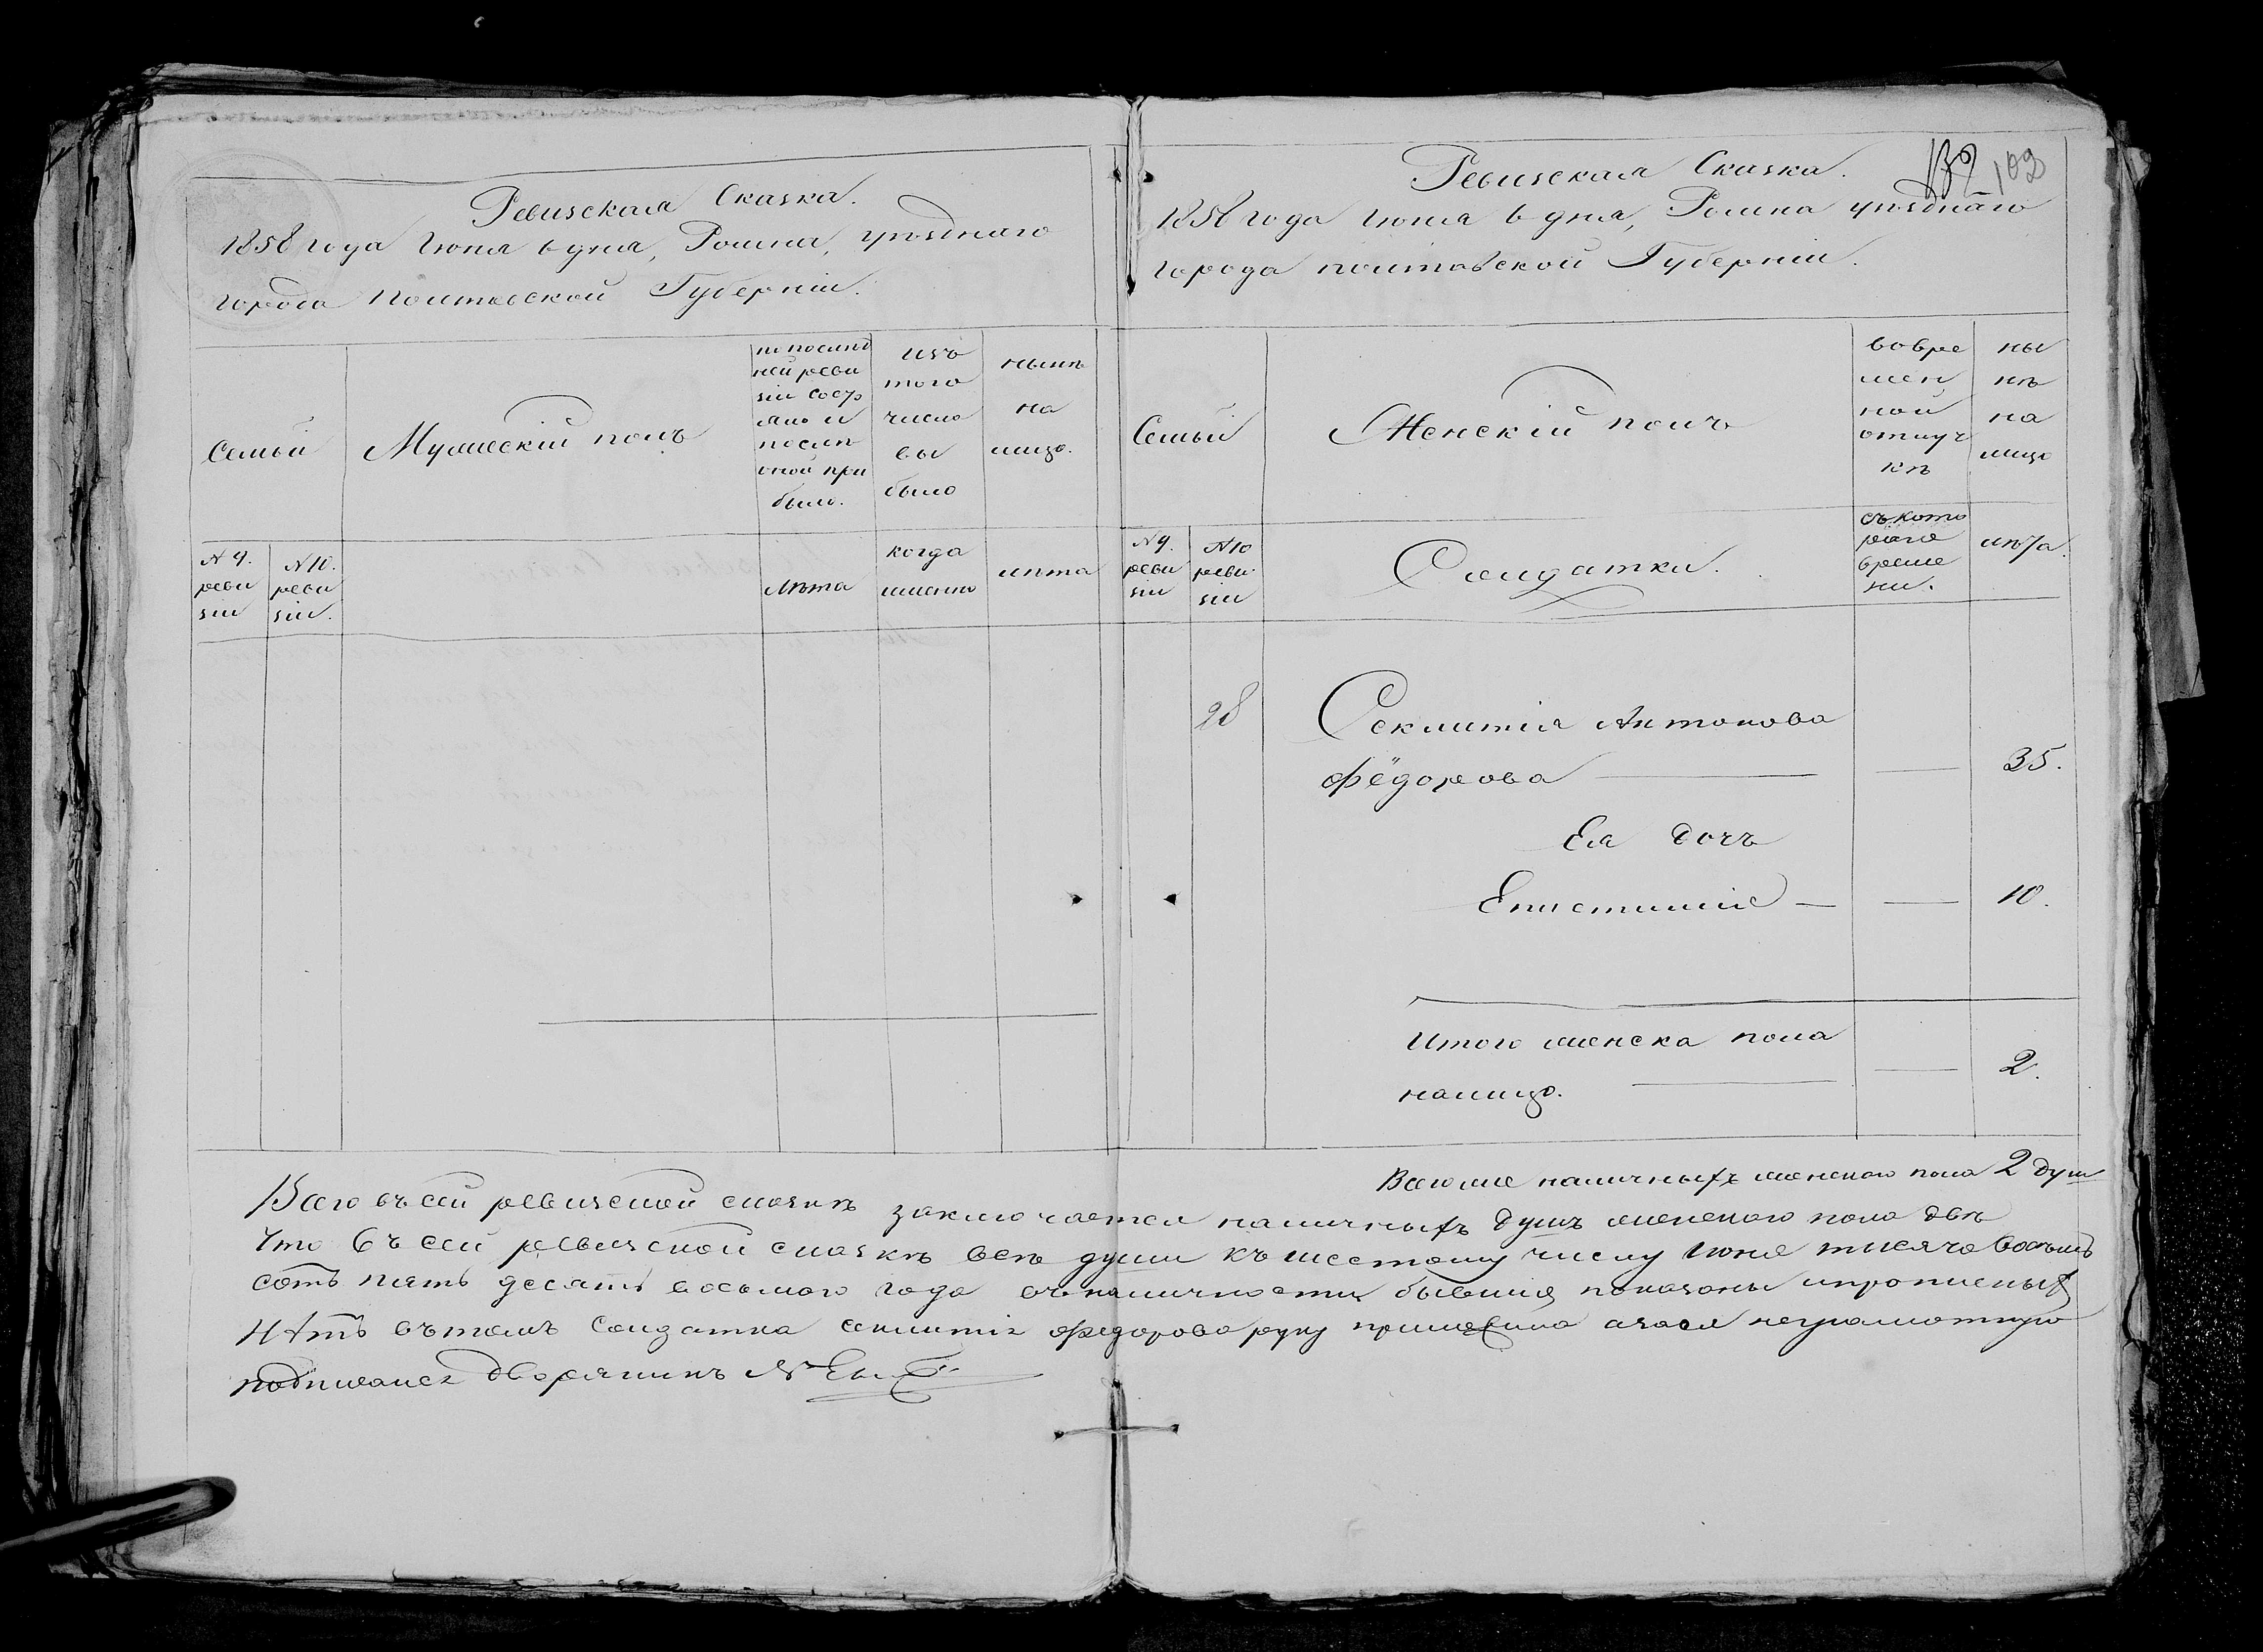 Ревизская Сказка.
1858 года Июня 6 дня, Ромна, уѣзднаго
города Полтавской Губерніи.
Семьи
Мужескій полъ
по послѣд
ней реви
зіи состо
яло и
послѣ
оной при
было.
изъ
того
числа
вы
было
нынѣ
на
лицо.
№ 9.
реви
зіи
№ 10.
реви
зіи.
лѣта
когда
именно
лѣта
103
Ревизская Сказка.
1858 года Июня 6 дня, Ромна уѣзднаго
города полтавской Губерніи.
Семьи
Женскій полъ
вовре
мен
ной
отлуч
кѣ
ны
нѣ
на
лицо
№ 9.
реви
зіи
№ 10
реви
зіи
Солдатки.
съ кото
раго
време
ни.
лѣта.
28
Секлитія Антонова
Фёдорова 35.
Ея дочь
Епистимія 10.
Итого женска пола
налицо. 2.
Всего же наличныхъ женскаго пола 2 души
Всего въ сей ревизской сказкѣ заключается наличныхъ душъ женскаго пола двѣ
Что въ сей ревизской сказкѣ всѣ души къ шестому числу Июня тысяча восемь
сотъ пять десятъ восьмого года въ наличности бывшия показаны
въ томъ Солдатка Секлитія Федорова руку приложила а за нея неграмотную
подписался дворянинъ